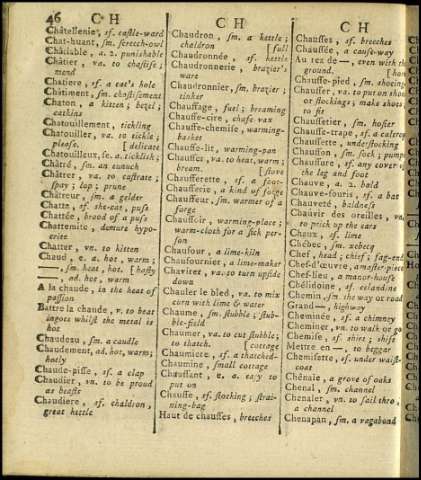 46 C H
C H
C H
Châtellenie, sf. castle-ward
Chat-huant, sm. screech-owl
Châtiable, a. 2. punishable
Châtier, va. to chastise;
mend
Chatiere, sf. a cat's hole
Châtiment, sm. chastisement
Chaton, a kitten; bezel;
catkins
Chatouillement, tickling
Chatouiller, va. to tickle;
please. [delicate
Chatouilleux, se. a. ticklish;
Châtré, sm. an eunuch
Châtrer, va. to castrate;
spay; lop; prune
Châtreur, sm. a gelder
Chatte, sf. she-cat, puss
Chattée, brood of a puss
Chattemite, demure hypo-
crite
Chatter, vn. to kitten
Chaud, e. a. hot, warm;
——, sm. heat, hot. [hastily
——, ad. hot, warm
A la chaude, in the heat of
passion
Battre la chaude, v. to beat
ingots whilst the metal is
hot
Chaudeau, sm. a caudle
Chaudement, ad. hot, warm;
hotly
Chaude-pisse, sf. a clap
Chaudier, vn. to be proud
as beasts
Chaudiere, sf. chaldron,
great kettle
Chaudron, sm. a kettle;
chaldron [full
Chaudronnée, sf. kettle
Chaudronnerie, brazier's
ware
Chaudronnier, sm. brazier;
tinker
Chauffage, fuel; breaming
Chauffe-cire, chafe-wax
Chauffe-chemise, warming-
basket
Chauffe-lit, warming-pan
Chauffer, va. to heat, warm;
bream. [stove
Chaufferette, sf. a foot-
Chaufferie, a kind of forge
Chauffeur, sm. warmer of a
forge
Chauffoir, warming-place;
warm-cloth for a sick per-
son
Chaufour, a lime-kiln
Chaufournier, a lime-maker
Chavirer, va. to turn upside
down
Chauler le bled, va. to mix
corn with lime & water
Chaume, sm. stubble; stub-
ble-field
Chaumer, va. to cut stubble;
to thatch. [cottage
Chaumiere, sf. a thatched-
Chaumine, small cottage
Chaussant, e. a. easy to
put on
Chausse, sf. stocking; strai-
ning-bag
Haut de chausses, breeches
Chausses, sf. breeches
Chaussée, a cause-way
Au rez de —, even with the
ground.
Chausse-pied, sm. shoeing-
Chausser, va. to put on shoes
or stockings; make shoes;
to fit
Chaussetier, sm. hosier
Chausse-trape, sf. a caltrop
Chaussette, understocking
Chausson, sm. sock; pump
Chaussure, sf. any cover of
the leg and foot
Chauve, a. 2. bald
Chauve-souris, sf. a bat
Chauveté, baldness
Chauvir des oreilles, vn.
to prick up the ears
Chaux, sf. lime
Chébec, sm. xebecq
Chef, head; chief; fag-end
Chef-d'œuvre, master-piece
Chef-lieu, a manor-house
Chélidoine, sf. celandine
Chemin, sm. the way or road
Grand—, highway
Cheminée, sf. a chimney
Cheminer, vn. to walk or go
Chemise, sf. shirt; shift
Mettre en—, to beggar
Chemisette, sf. under waist-
coat
Chênaie, a grove of oaks
Chenal, sm. channel
Chenaler, vn. to sail thro,
a channel
Chenapan, sm. a vagabond